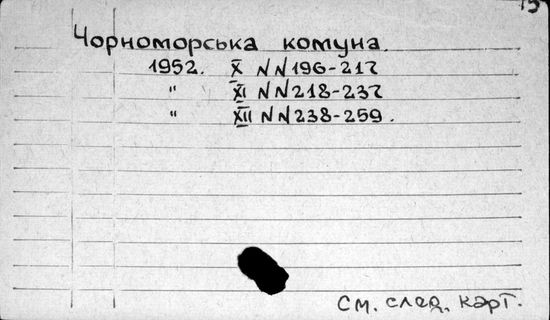 Чорноморська комуна.
1952. X NN 196-217
" XI NN 218-237
" XII NN 238-259.
См. след. карт.